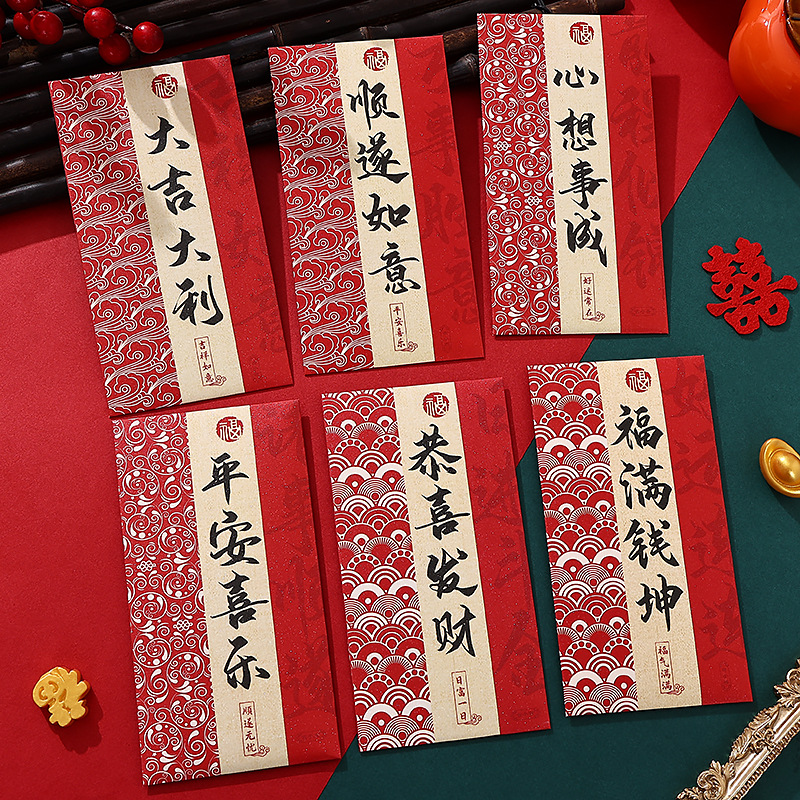 福
大吉大利
吉祥如意
福
顺遂如意
平安喜乐
福
心想事成
好运常在
福
平安喜乐
顺遂无忧
福
恭喜发财
日富一日
福
福满钱坤
福气满满
囍